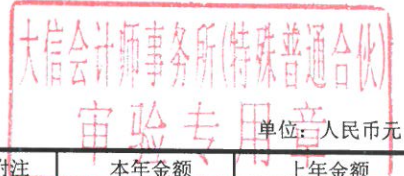 大信会计师事务所(特殊普通合伙)
审验专用章
单位：人民币元
附注 本年金额 上年金额